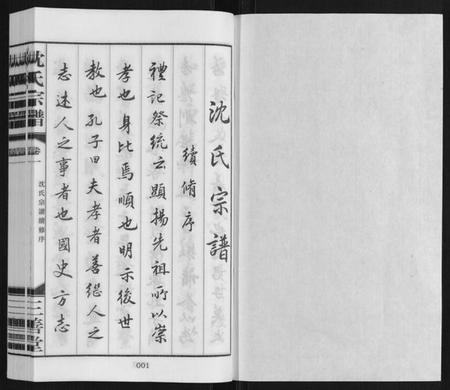 沈氏宗譜
續脩序
禮記祭統云顯揚先祖所以崇
孝也身比焉順也明示後世
教也孔子曰夫孝者善繼人之
志述人之事者也國史方志
沈氏宗譜
卷一
沈氏宗譜續修序
三善堂
001